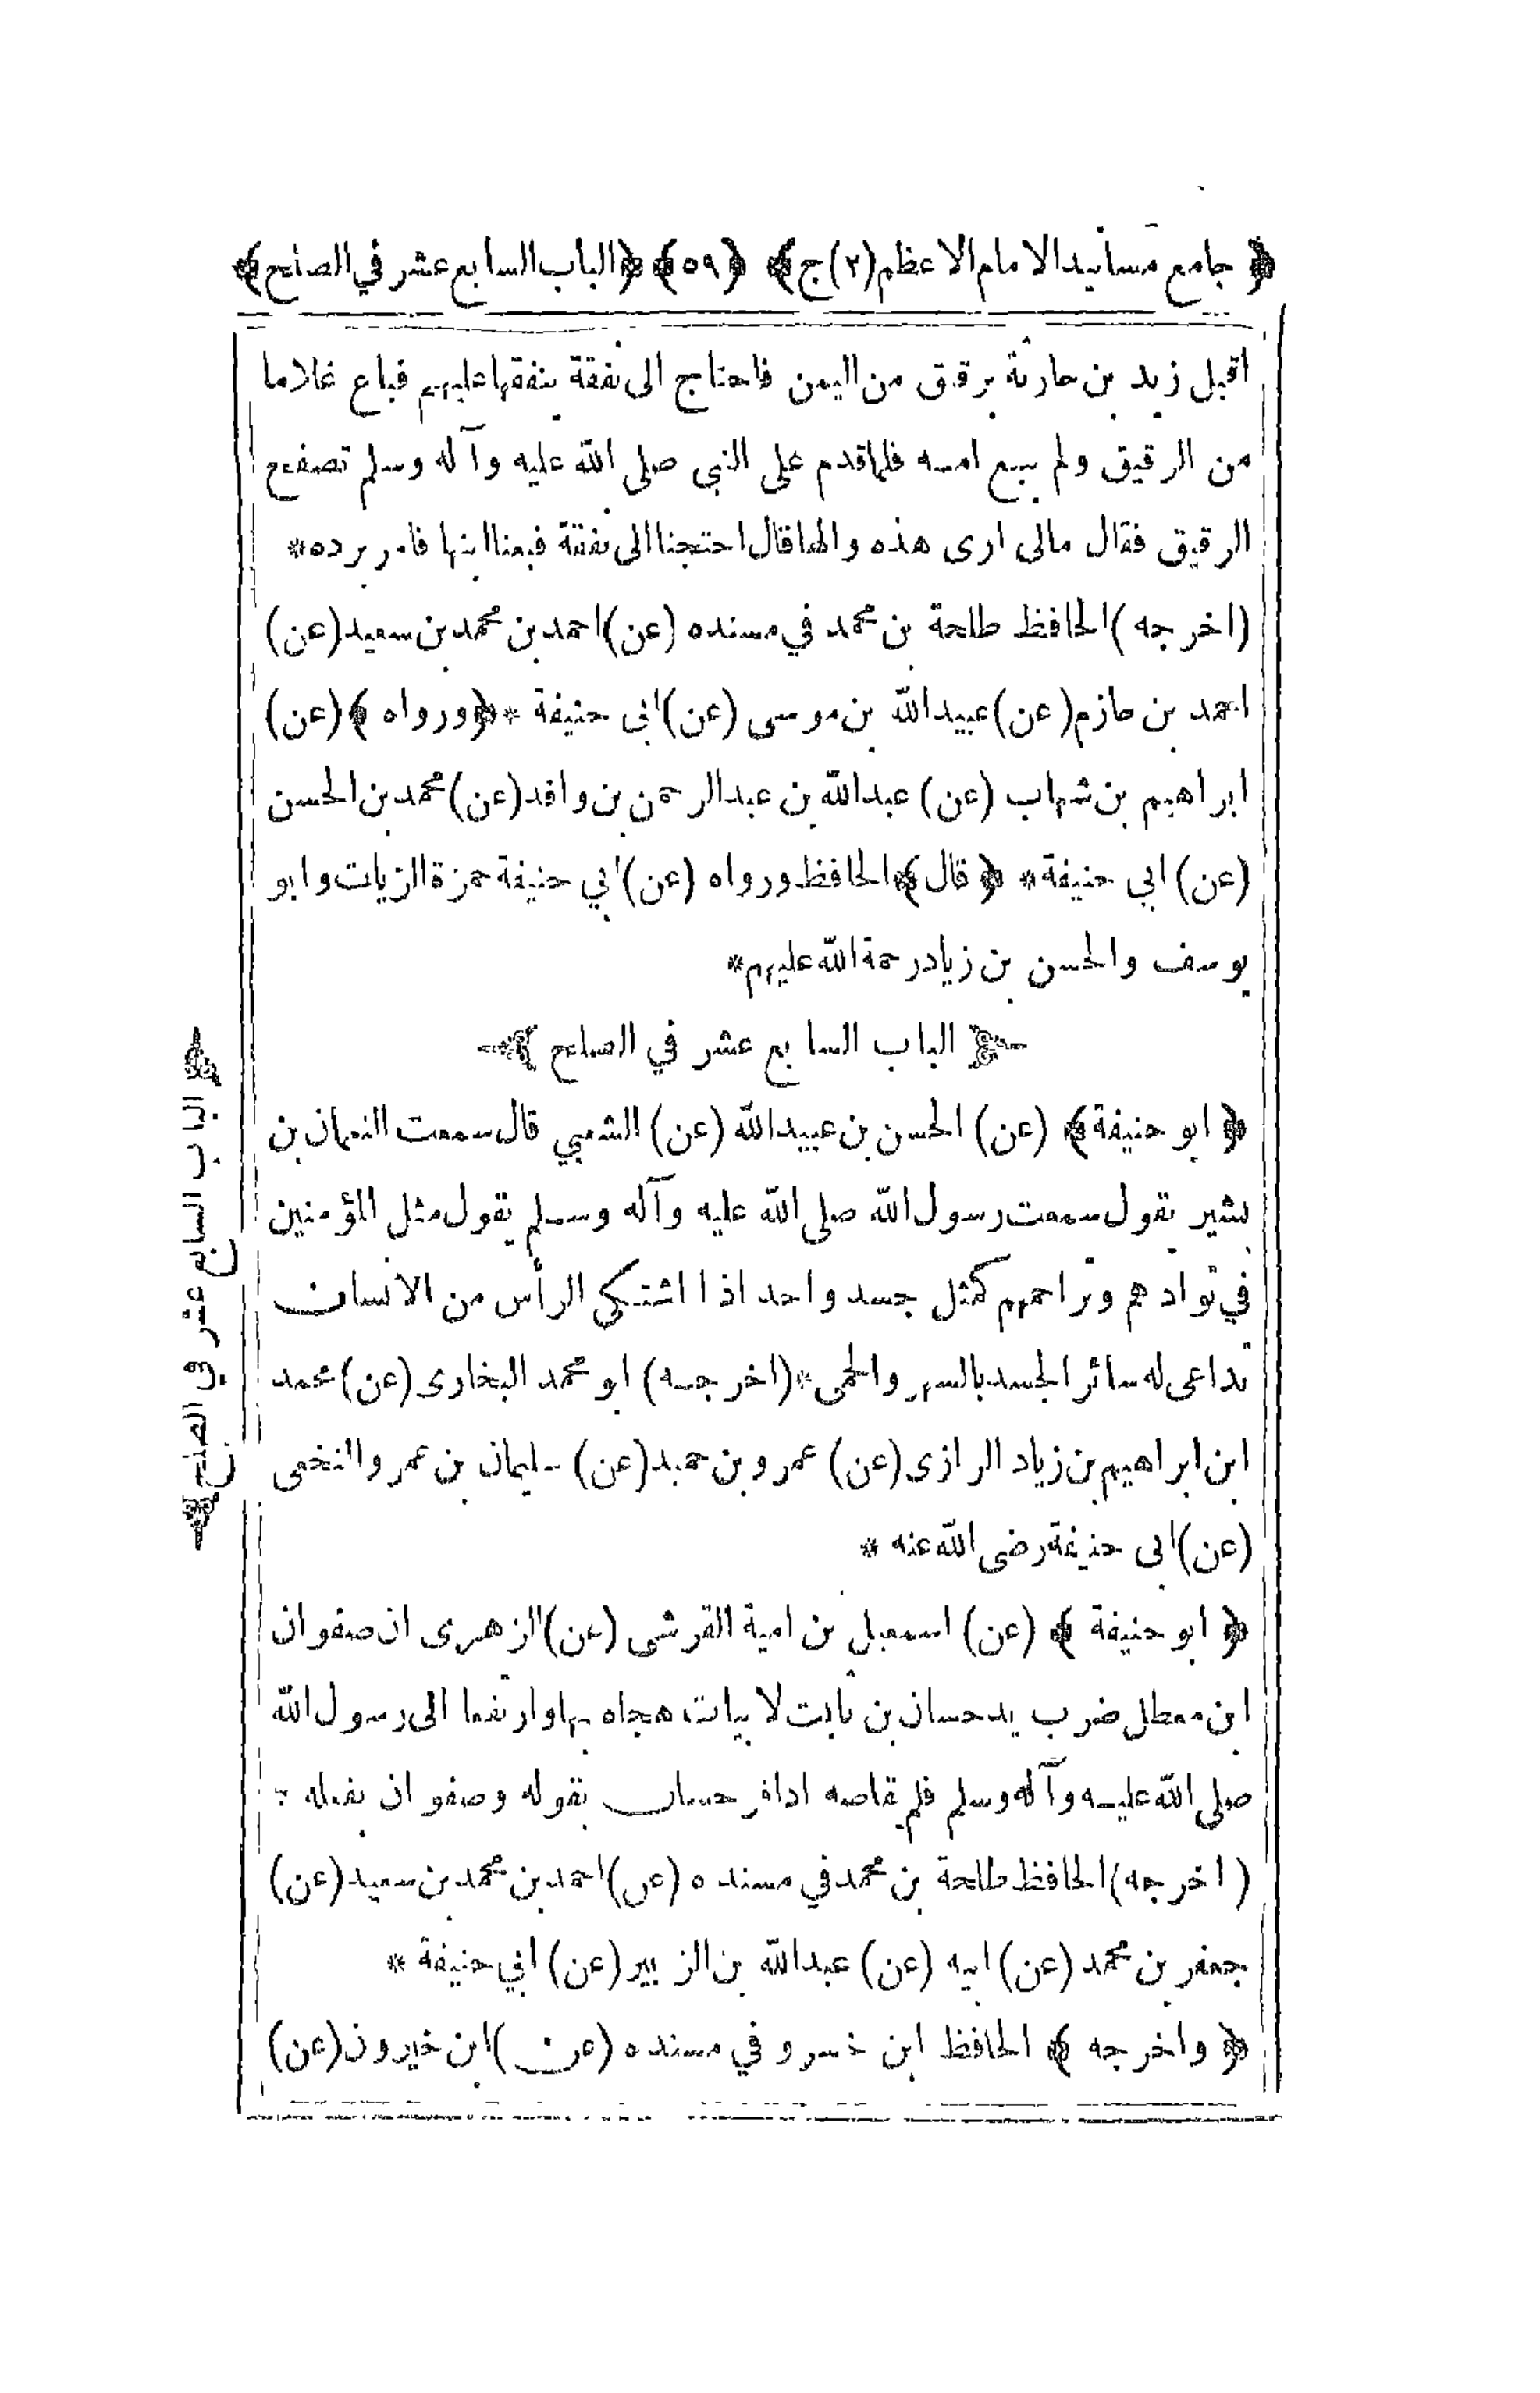 ﴿ جامع مسانيد الامام الاعظم (٢) ج ﴾ ﴿ ٥٩ ﴾ ﴿ الباب السابع عشر في الصلح ﴾
اقبل زيد بن حارثة برقيق من اليمن فاحتاج الى نفقة ينفقها عليهم فباع غلاما
من الرقيق ولم يبع امه فلما قدم على النبي صلى الله عليه وآله وسلم تصفح
الرقيق فقال مالى ارى هذه والها قال احتجنا الى نفقة فبعنا ابنها فامر برده *
(اخرجه) الحافظ طلحة بن محمد في مسنده (عن) احمد بن محمد بن سعيد (عن)
احمد بن حازم (عن) عبيد الله بن موسى (عن) ابى حنيفة * ﴿ ورواه ﴾ (عن)
ابراهيم بن شهاب (عن) عبد الله بن عبد الرحمن بن واقد (عن) محمد بن الحسن
(عن) ابى حنيفة * ﴿ قال ﴾ الحافظ ورواه (عن) ابي حنيفة حمزة الزيات وابو
يوسف والحسن بن زياد رحمة الله عليهم *
الباب السابع عشر في الصلح
﴿ ابو حنيفة ﴾ (عن) الحسن بن عبيد الله (عن) الشعبي قال سمعت النعمان بن
بشير يقول سمعت رسول الله صلى الله عليه وآله وسلم يقول مثل المؤمنين
في توادهم وتراحمهم كمثل جسد واحد اذا اشتكى الرأس من الانسان
تداعى له سائر الجسد بالسهر والحمى * (اخرجه) ابو محمد البخارى (عن) محمد
ابن ابراهيم بن زياد الرازى (عن) عمرو بن حميد (عن) سليمان بن عمرو النخعى
(عن) ابى حنيفة رضى الله عنه *
﴿ ابو حنيفة ﴾ (عن) اسمعيل بن امية القرشى (عن) الزهرى ان صفوان
ابن معطل ضرب يد حسان بن ثابت لابيات هجاه بها وارتفعا الى رسول الله
صلى الله عليه وآله وسلم فلم يقاصه اذاقر حسان بقوله وصفوان بفعله *
(اخرجه) الحافظ طلحة بن محمد في مسنده (عن) احمد بن محمد بن سعيد (عن)
جعفر بن محمد (عن) ابيه (عن) عبد الله بن الزبير (عن) ابي حنيفة *
﴿ واخرجه ﴾ الحافظ ابن خسرو في مسنده (عن) ابن خيرون (عن)
﴿ الباب السابع عشر في الصلح ﴾